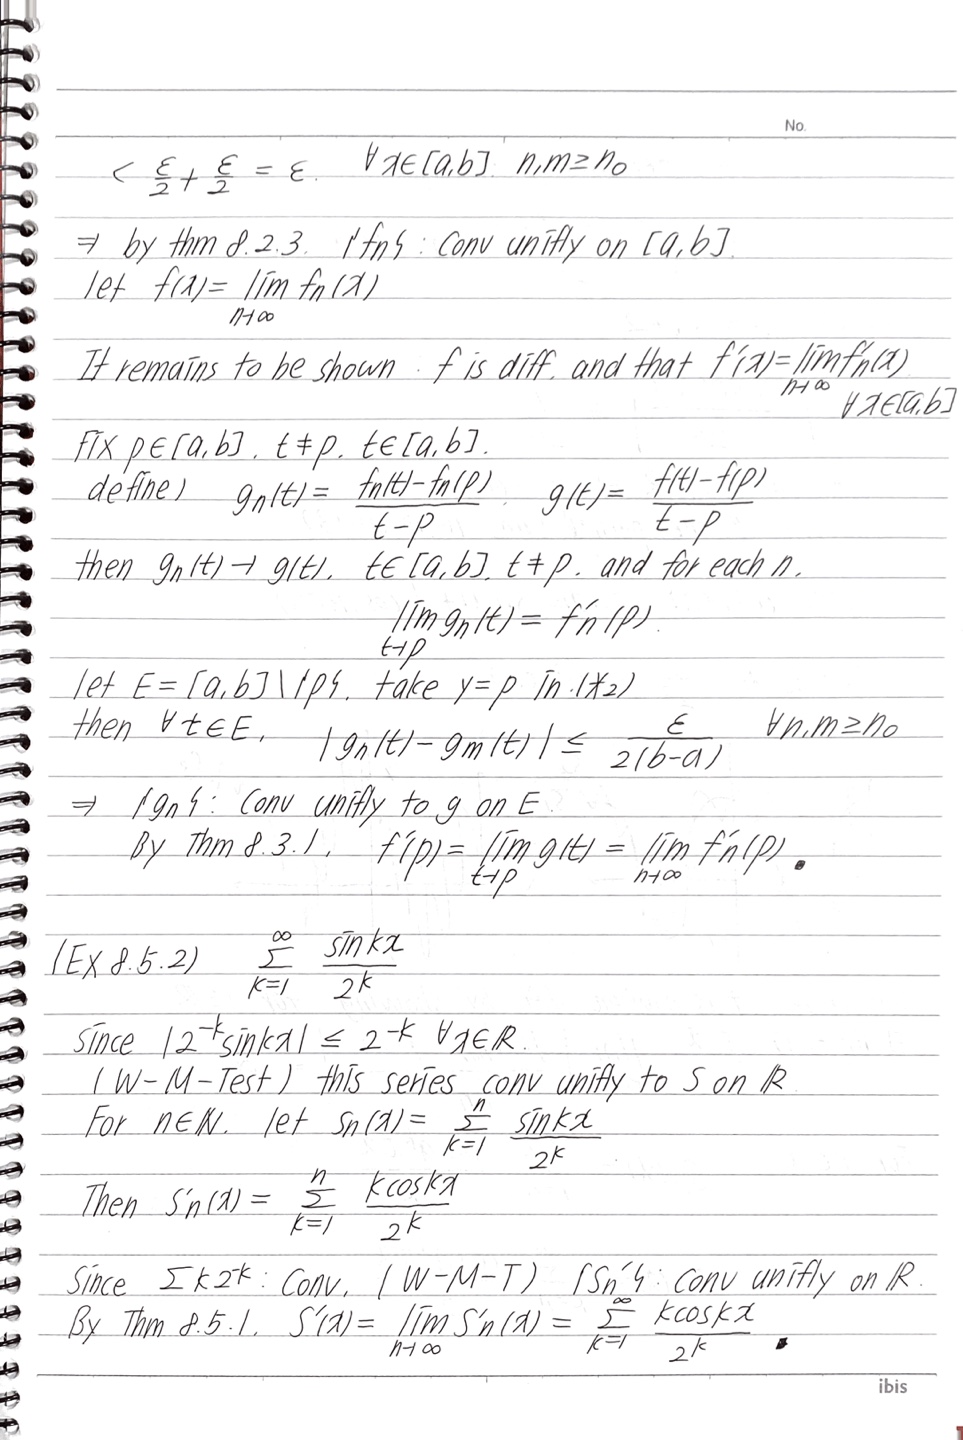 No.
< ε/2 + ε/2 = ε. ∀x∈[a,b] n,m≥n₀
⇒ by thm 8.2.3. {fn} : conv unifly on [a,b].
let f(x)= lim_{n→∞} fn(x)
It remains to be shown . f is diff. and that f'(x)=lim_{n→∞} f'n(x)
∀x∈[a,b]
Fix p∈[a,b]. t≠p. t∈[a,b].
define) gn(t)= (fn(t)-fn(p))/(t-p) . g(t)= (f(t)-f(p))/(t-p)
then gn(t)→g(t). t∈[a,b]. t≠p. and for each n.
lim_{t→p} gn(t)= f'n(p).
let E=[a,b]\{p}. take y=p in (*2)
then ∀t∈E, |gn(t)-gm(t)| ≤ ε/(2(b-a)) ∀n,m≥n₀
⇒ {gn} : conv unifly to g on E.
By Thm 8.3.1, f'(p)= lim_{t→p} g(t)= lim_{n→∞} f'n(p).
(EX 8.5.2) ∑_{k=1}^{∞} sinkx/2^k
since |2^{-k}sinkx| ≤ 2^{-k} ∀x∈ℝ.
(W-M-Test) this series conv unifly to S on ℝ
For n∈ℕ. let Sn(x)= ∑_{k=1}^{n} sinkx/2^k
Then S'n(x)= ∑_{k=1}^{n} kcoskx/2^k
Since ∑k2^{-k} : conv. (W-M-T) {Sn'} : conv unifly on ℝ.
By Thm 8.5.1. S'(x)= lim_{n→∞} S'n(x)= ∑_{k=1}^{∞} kcoskx/2^k .
ibis